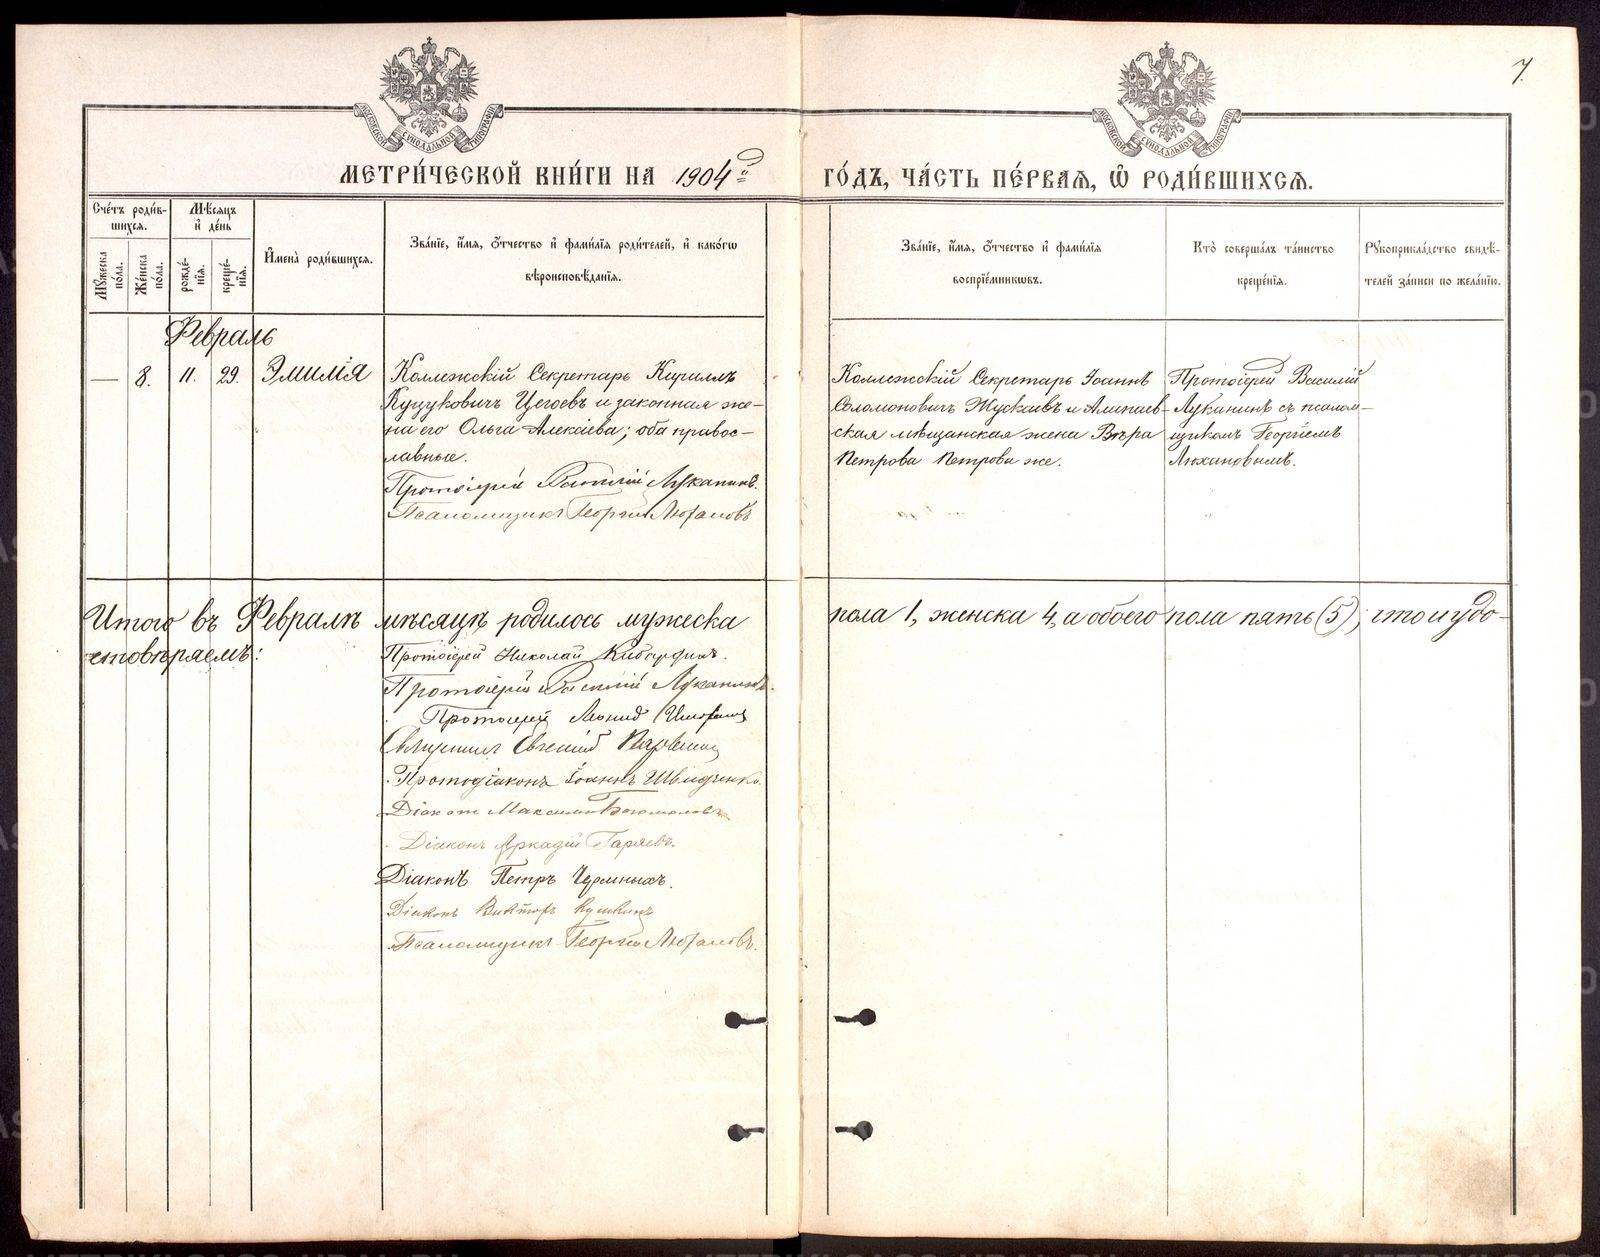 7.
МОСКОВСКОЙ СѴНОДАЛЬНОЙ ТИПОГРАФІИ
МОСКОВСКОЙ СѴНОДАЛЬНОЙ ТИПОГРАФІИ
МЕТРИ́ЧЕСКОЙ КНИ́ГИ НА 1904й ГО́ДЪ, ЧА́СТЬ ПЕ́РВАЯ, Ѡ РОДИ́ВШИХСЯ.
Сче́тъ роди́в-
шихся.
Мѣсяцъ
и де́нь
Мꙋ́жеска
по́ла.
Же́нска
по́ла.
рожде́-
нїя.
креще́-
нїя.
И҆мена̀ роди́вшихся.
Зва́нїе, и҆́мя, ѻ҆́тчество и҆ фами́лїя роди́телей, и҆ како́гѡ
вѣроисповѣ́данїя.
Зва́нїе, и҆́мя, ѻ҆́тчество и҆ фами́лїя
воспрїе́мникѡвъ.
Кто̀ соверша́лъ та́инство
креще́нїя.
Рꙋкоприкла́дство свидѣ́-
телей за́писи по жела́нїю.
Февраль
— 8. 11. 29. Эмилія
Коллежскій Секретарь Кириллъ
Куцуковичъ Цегоевъ и законная же-
на его Ольга Алексіева; оба правос-
лавные.
Протоіерей Василій Луканинъ.
Псаломщикъ Георгій Люхановъ
Коллежскій Секретарь Іоаннъ
Соломоновичъ Жускаевъ и Алапаев-
ская мѣщанская жена Вѣра
Петрова Петрова же.
Протоіерей Василій
Луканинъ съ псалом-
щикомъ Георгіемъ
Люхановымъ.
Итого въ Февралѣ мѣсяцѣ родилось мужеска пола 1, женска 4, а обоего пола пять (5); что и удо-
стовѣряемъ:
Протоіерей Николай
Протоіерей Василій Луканинъ.
Протоіерей Леонид Игноратов
Священникъ Евгеній
Протодіаконъ Іоаннъ Швидченко.
Діаконъ Максимъ Богомоловъ
Діаконъ Аркадій Гаряевъ.
Діаконъ Петръ Чермныхъ.
Діаконъ Викторъ Кушкинъ
Псаломщикъ Георгій Люхановъ.